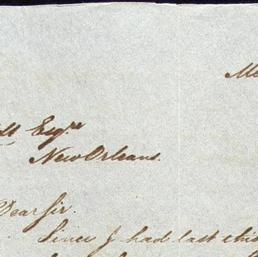 Me
Esqre
New Orleans.
Dear Sir.
Since I had last this